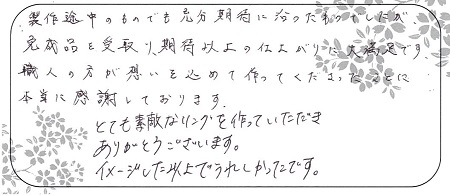 製作途中のものでも充分期待に沿ったものでしたが
完成品を受取り、期待以上の仕上がりに大満足です。
職人の方が想いを込めて作ってくださったことに
本当に感謝しております。
とても素敵なリングを作っていただき
ありがとうございます。
イメージした以上でうれしかったです。